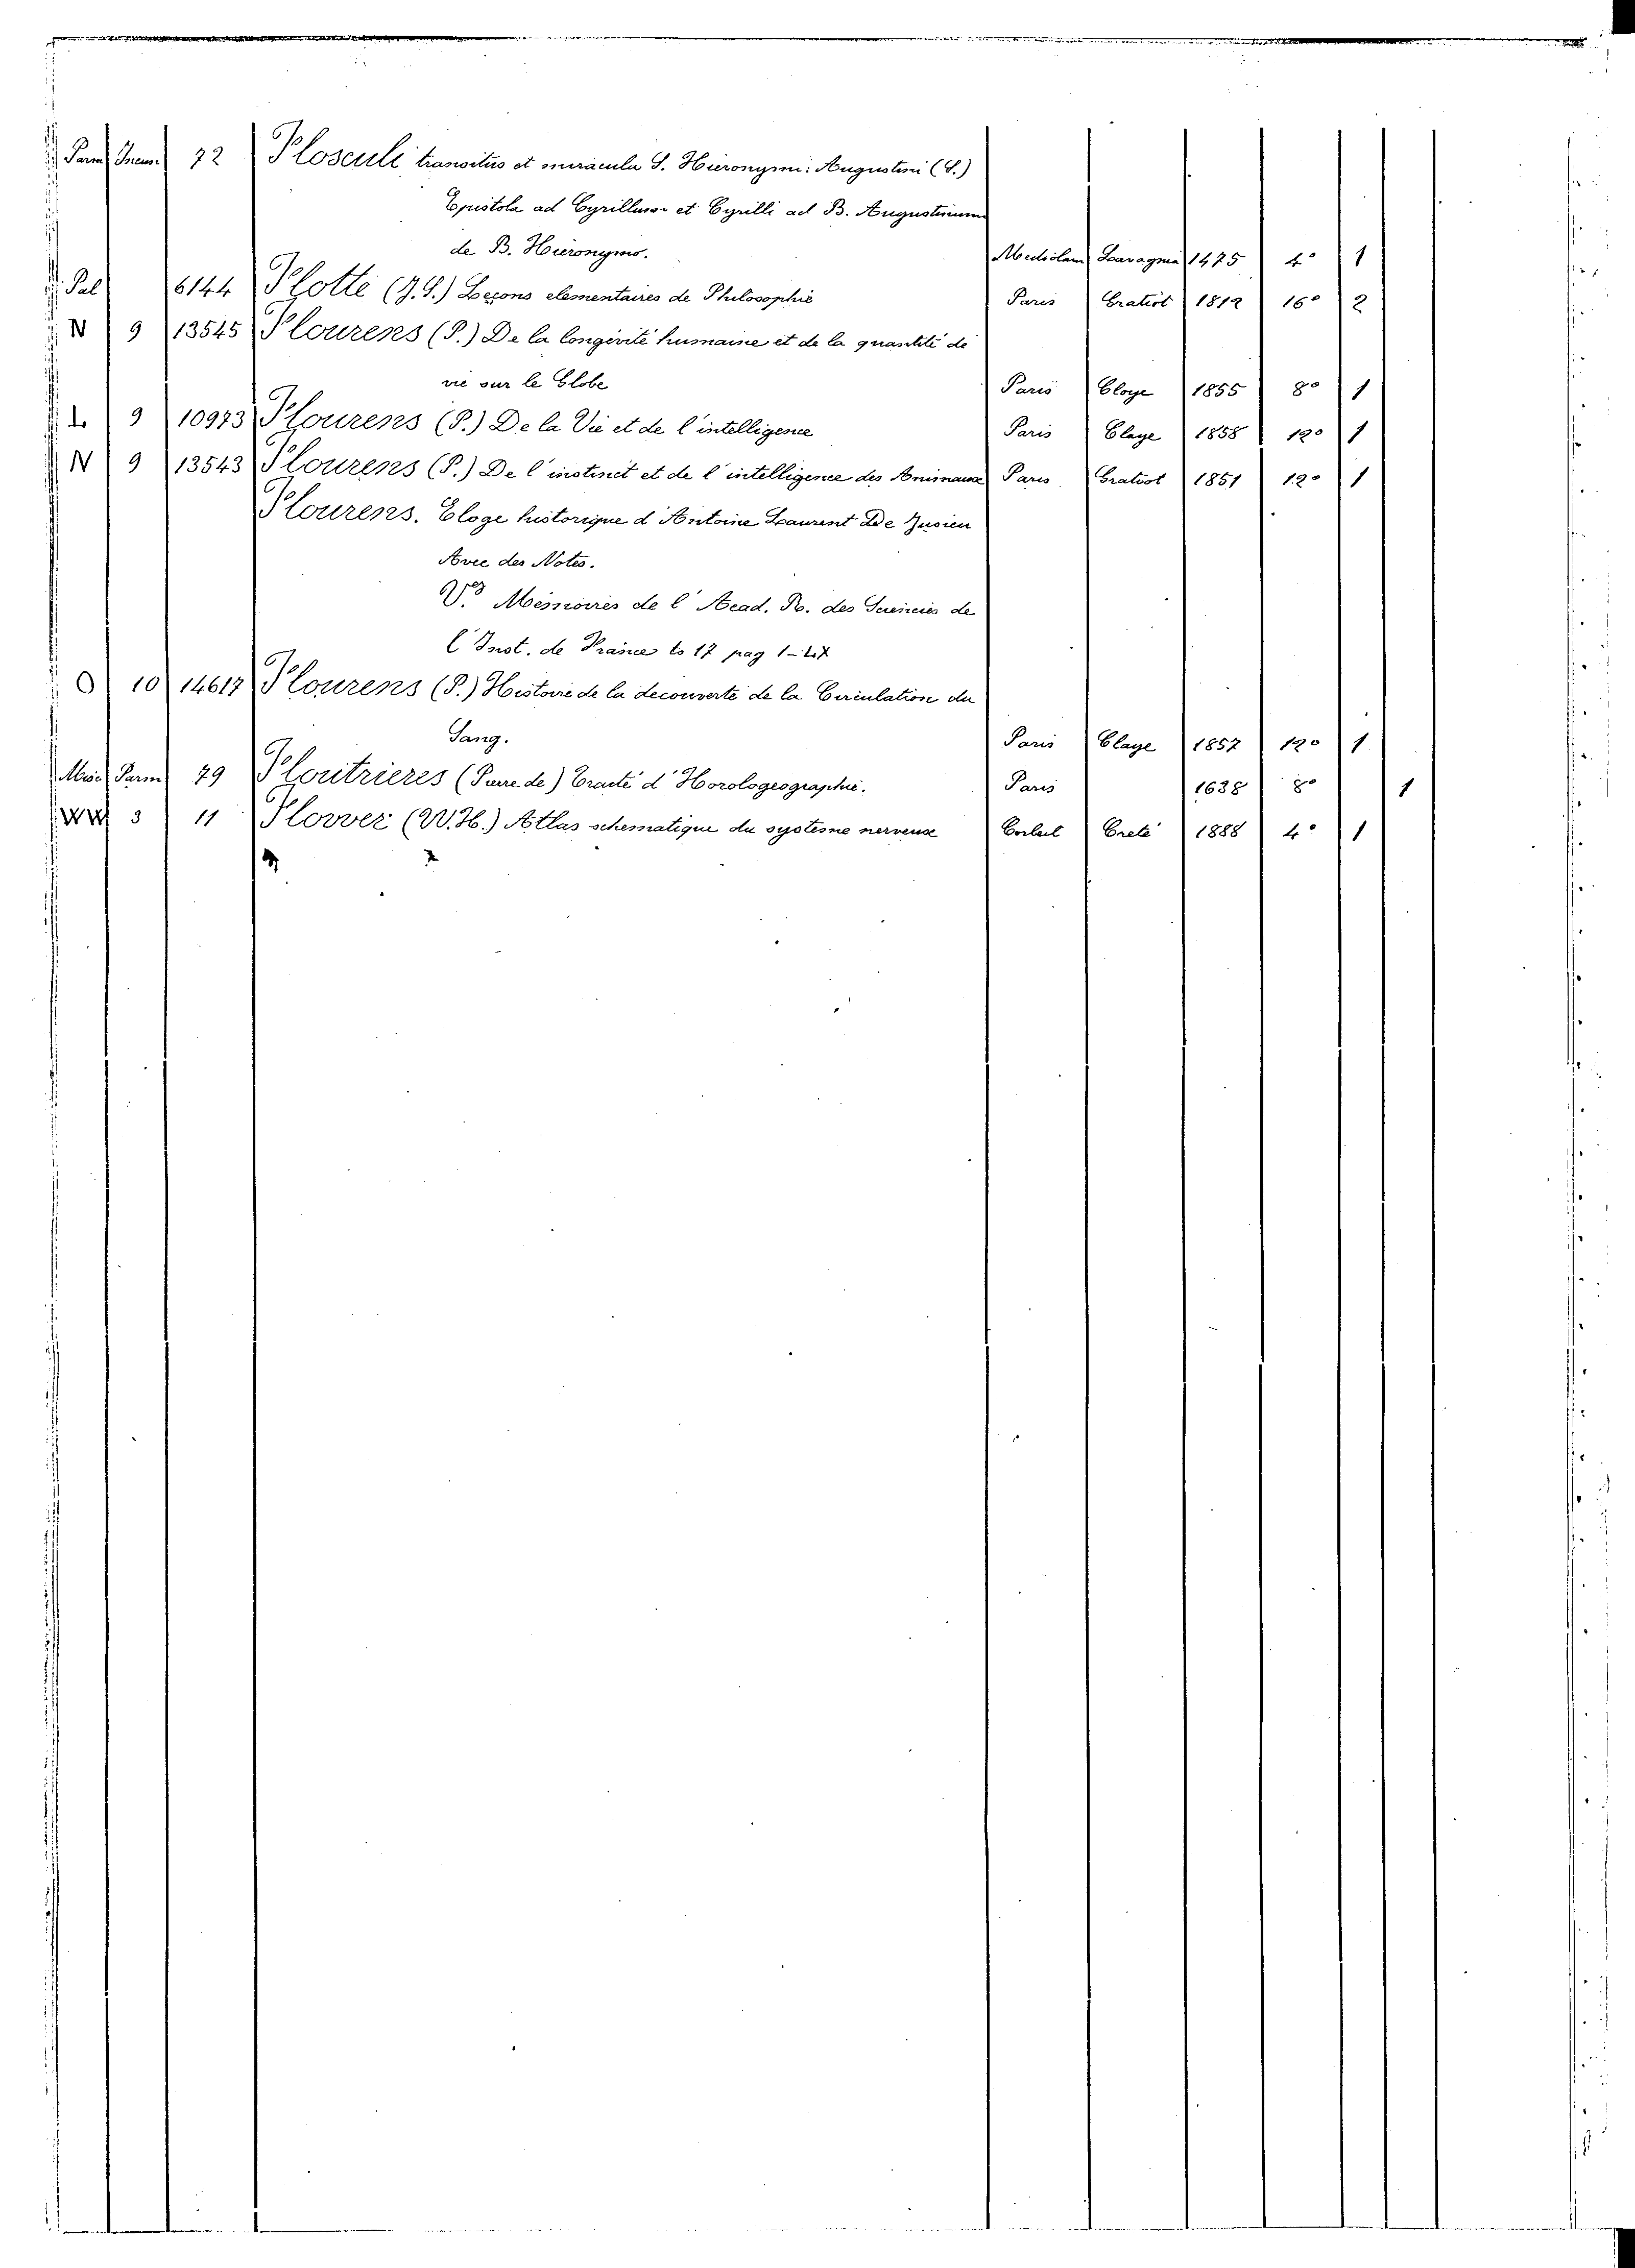 Parm Incun 72 Flosculi transitus et miracula S. Hieronymi: Augustini (S.)
Epistola ad Cyrillum et Cyrilli ad B. Augustinum
de B. Hieronymo. Mediolani Lavagnia 1475 4° 1
Pal 6144 Flotte (J.S.) Leçons elementaires de Philosophie Paris Gratiot 1812 16° 2
N 9 13545 Flourens (P.) De la longévité humaine et de la quantité de
vie sur le Globe Paris Claye 1855 8° 1
L 9 10973 Flourens (P.) De la Vie et de l'intelligence Paris Claye 1858 12° 1
N 9 13543 Flourens (P.) De l'instinct et de l'intelligence des Animaux Paris Gratiot 1851 12° 1
Flourens. Eloge historique d'Antoine Laurent De Jusieu
Avec des Notes.
V.^o Mémoires de l'Acad. R. des Sciencies de
l'Inst. de France to 17 pag 1-
O 10 14617 Flourens (P.) Histoire de la decouverte de la Circulation du
Sang. Paris Claye 1857 12° 1
Misc Parm 79 Floutrieres (Pierre de) Traité d'Horologeographie. Paris 1638 8° 1
WW 3 11 Flovver (W.H.) Atlas schematique du systeme nerveux Corbeil Creté 1888 4° 1